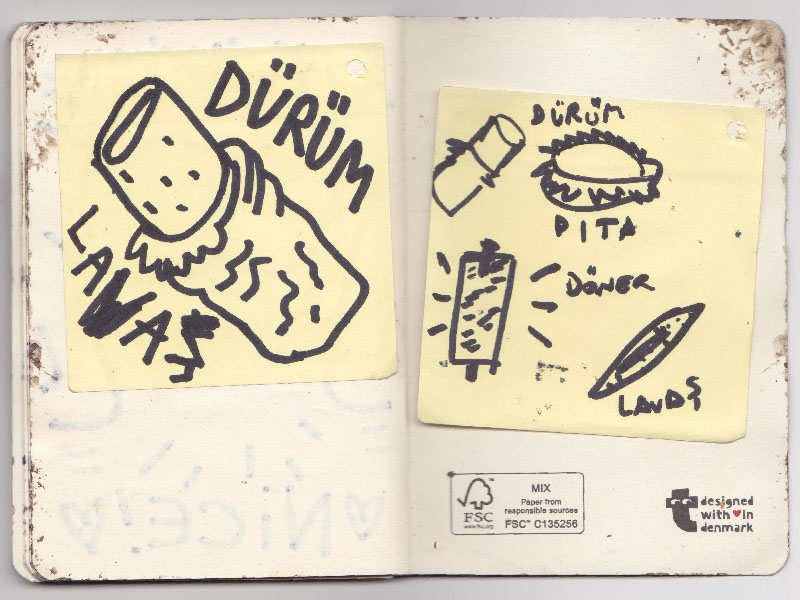 DÜRÜM
LAVAŞ
DÜRÜM
PITA
DÖNER
LAVAŞ
FSC
www.fsc.org
MIX
Paper from
responsible sources
FSC™ C135256
designed
with in
denmark